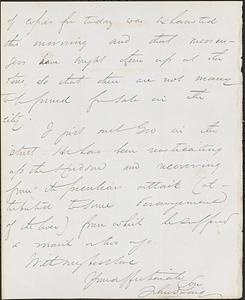 of copies for today was exhausted
this morning and that messen-
gers have bright often up at the
time so that there are not many
to be found for sale in the
city.
I just met Geo in the
street. He has been rusticating
up the Hudson and recovering
from a peculiar attack (at-
tributed to some derangement
of the liver) from which he suffered
a month or two ago.
With my best love
Your affectionate Son